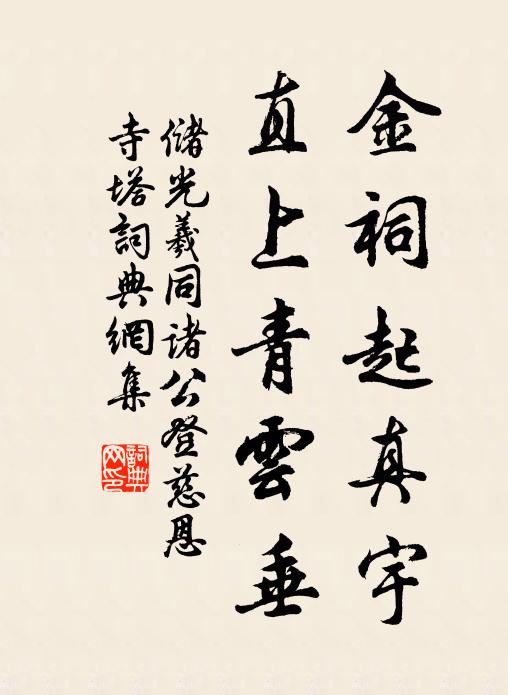 金祠起真宇
直上青雲垂
儲光羲同諸公登慈恩
寺塔詞典網集
詞典
网印